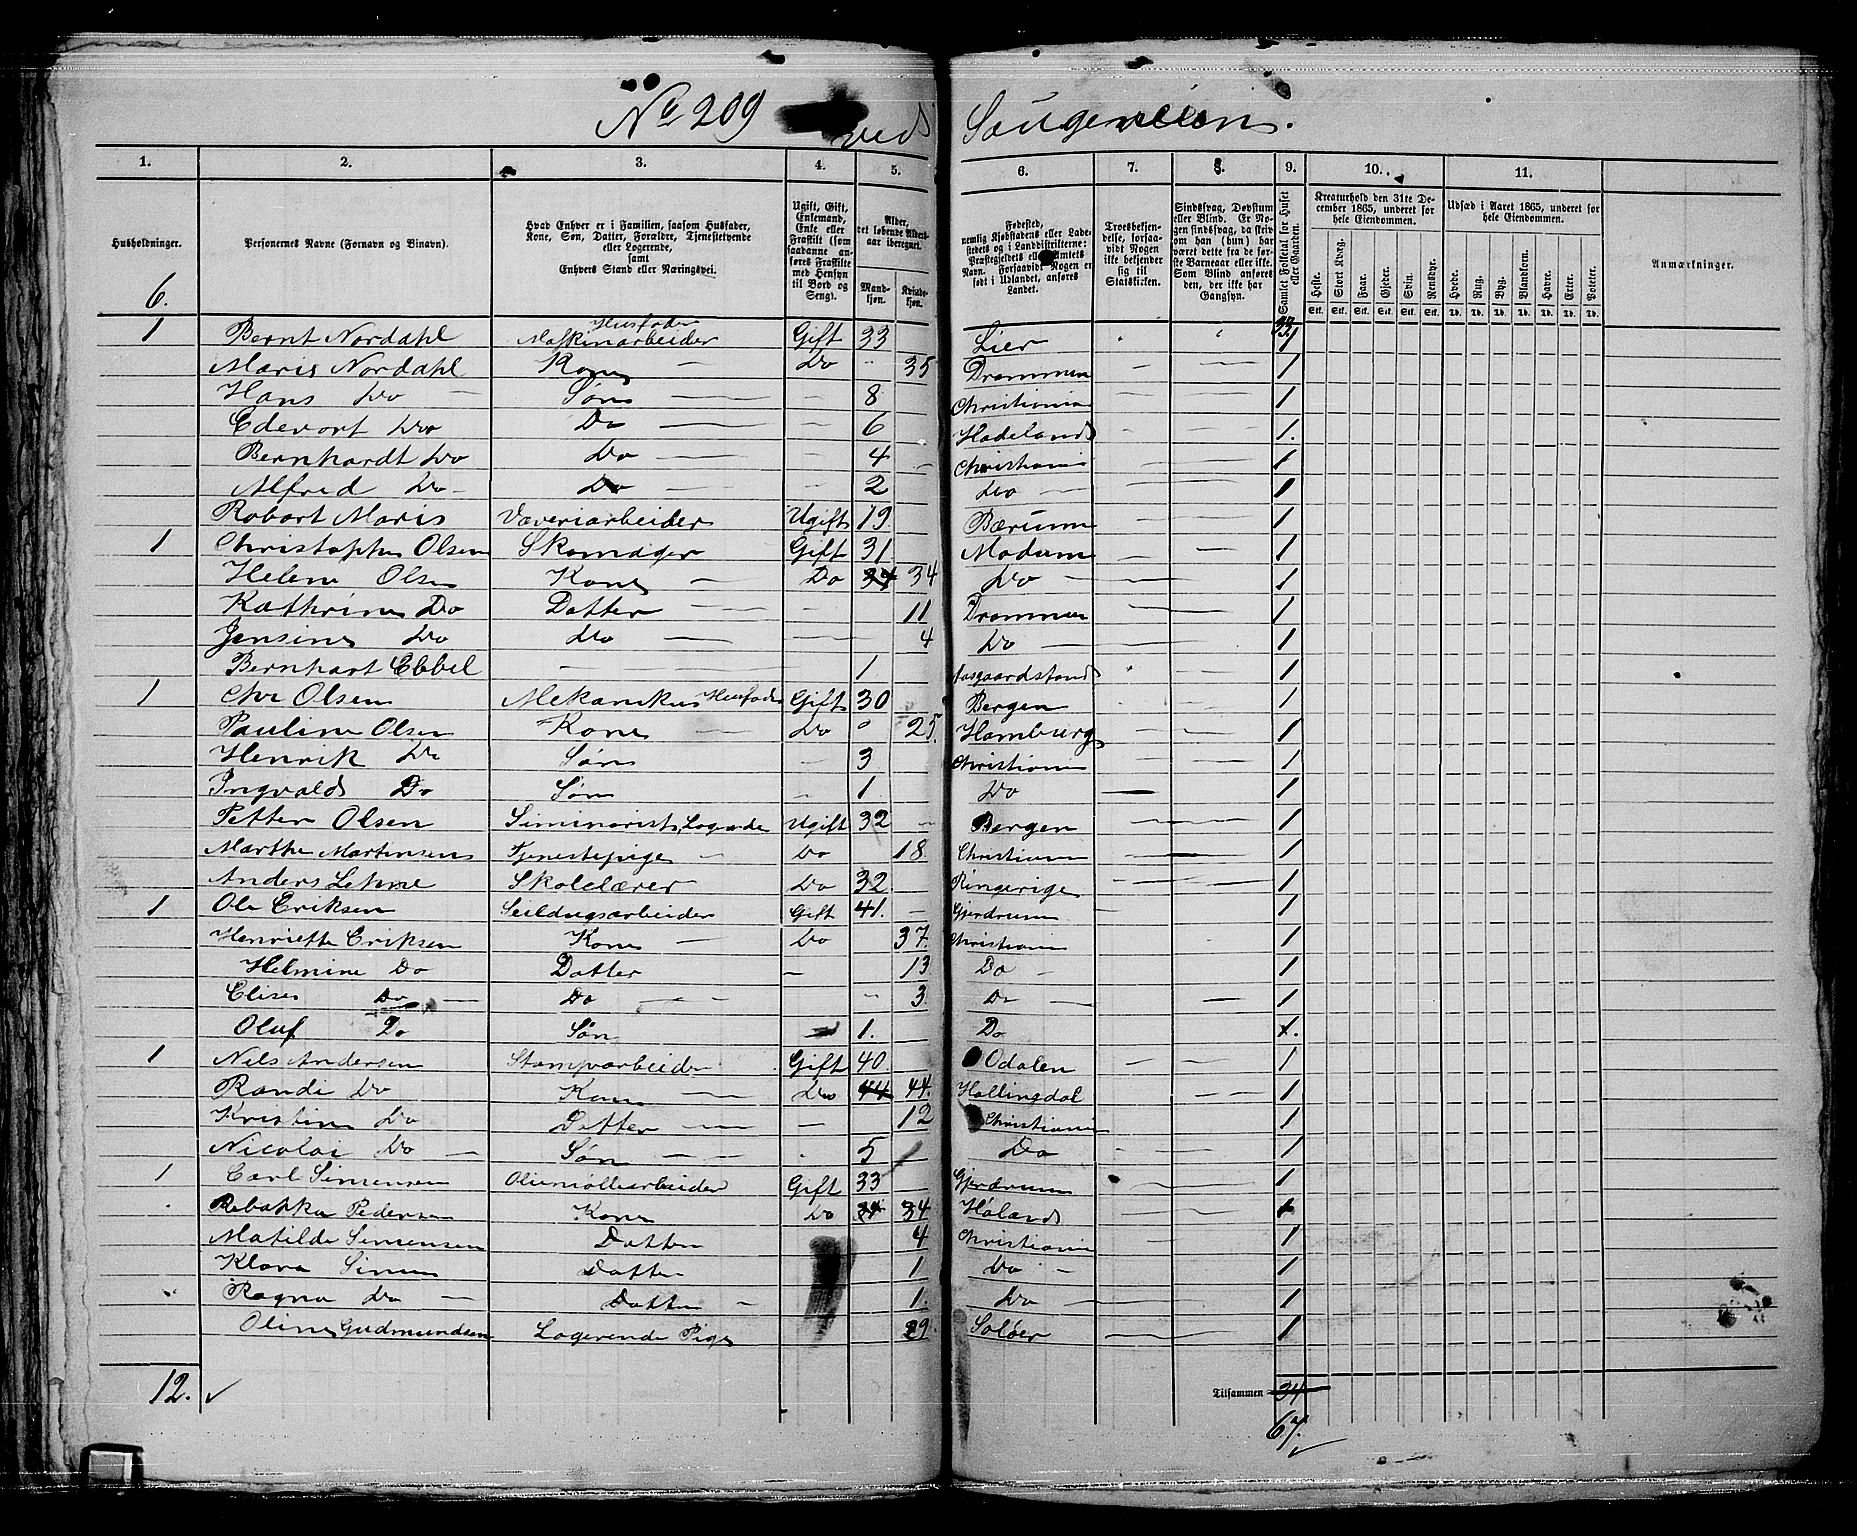 No 209 ved Saugveien.
1. 2. 3. 4. 5. 6. 7. 8. 9. 10. 11.
Husholdninger.
Personernes Navne (Fornavn og Binavn).
Hvad Enhver er i Familien, saasom Husfader, Kone, Søn, Datter, Forældre, Tjenestetyende eller Logerende, samt Enhvers Stand eller Næringsvei.
Ugift, Gift, Enkemand, Enke eller Fraskilt (som saadanne anføres Fraskilte med Hensyn til Bord og Seng).
Alder, det løbende Aldersaar iberegnet.
Mandkjøn. Kvindekjøn.
Fødested, nemlig Kjøbstadens eller Ladestedets og i Landdistrikterne: Præstegjeldets eller Amtets Navn. Forsaavidt Nogen er født i Udlandet, anføres Landet.
Troesbekjendelse, forsaavidt Nogen ikke bekjender sig til Statskirken.
Sindssvag, Døvstum eller Blind. Er Nogen sindssvag, da skriv om han (hun) har været dette fra de første Barneaar eller ikke. Som Blind anføres den, der ikke har Gangsyn.
Samlet Folketal for Huset eller Gaarden.
Kreaturhold den 31te December 1865, underet for hele Eiendommen.
Heste. Stort Kvæg. Faar. Gjeder. Svin. Rensdyr.
Stk. Stk. Stk. Stk. Stk. Stk.
Udsæd i Aaret 1865, underet for hele Eiendommen.
Hvede. Rug. Byg. Blandkorn. Havre. Erter. Poteter.
Td. Td. Td. Td. Td. Td. Td.
Anmærkninger.
6. 33
1 Bernt Nordahl Husfader Maskinarbeider Gift 33 Lier 1
Maris Nordahl Kone Do 35 Drammen 1
Hans Do Søn 8 Christiania 1
Edevart Do Do 6 Hadeland 1.
Bernhardt Do Do 4 Christiania 1
Alfred Do Do 2 Do 1
Robart Maris Væveriarbeider Ugift 19. Bærum 1
1 Christopher Olsen Skomager Gift 31. Modum 1
Helene Olsen Kone Do 34 34 Do 1
Kathrine Do Datter 11 Drammen 1
Jensine Do Do 4 Do 1
Bernhart Ebbel 1 Aasgaardstrand 1
1 Chr Olsen Mekanikus Husfader Gift 30 Bergen 1
Pauline Olsen Kone Do 25. Hamburg 1
Henrik Do Søn 3 Christiania 1
Ingvald Do Søn 1. Do 1
Petter Olsen Siminarist, Logerende Ugift 32 Bergen 1
Marthe Martinsen Tjenestepige Do 18. Christiania 1
Anders Lehne Skolelærer Do 32 Ringerige 1
1 Ole Eriksen Seildugsarbeider Gift 41. Gjerdrum 1
Henriette Eriksen Kone Do 37. Christiania 1
Helmine Do Datter 13 Do 1
Elise Do Do 3. Do 1
Oluf Do Søn 1. Do 1.
1 Nils Andersen Stampearbeider Gift 40. Odalen 1
Randi Do Kone Do 44 44. Hallingdal 1
Kristine Do Datter 12 Christiania 1
Nicolai Do Søn 5 Do 1
1 Carl Simensen Oliemøllearbeider Gift 33 Gjerdrum 1
Rebakka Pedersen Kone Do 34 34 Høland 1
Matilde Simensen Datter 4 Christiania 1
Klara Simen Datter 1 Do 1
Ragna Do Datter 1. Do 1
Oline Gudmundsen Logerende Pige 29. Soløer 1
12. ✓
Tilsammen 34
67. ✓